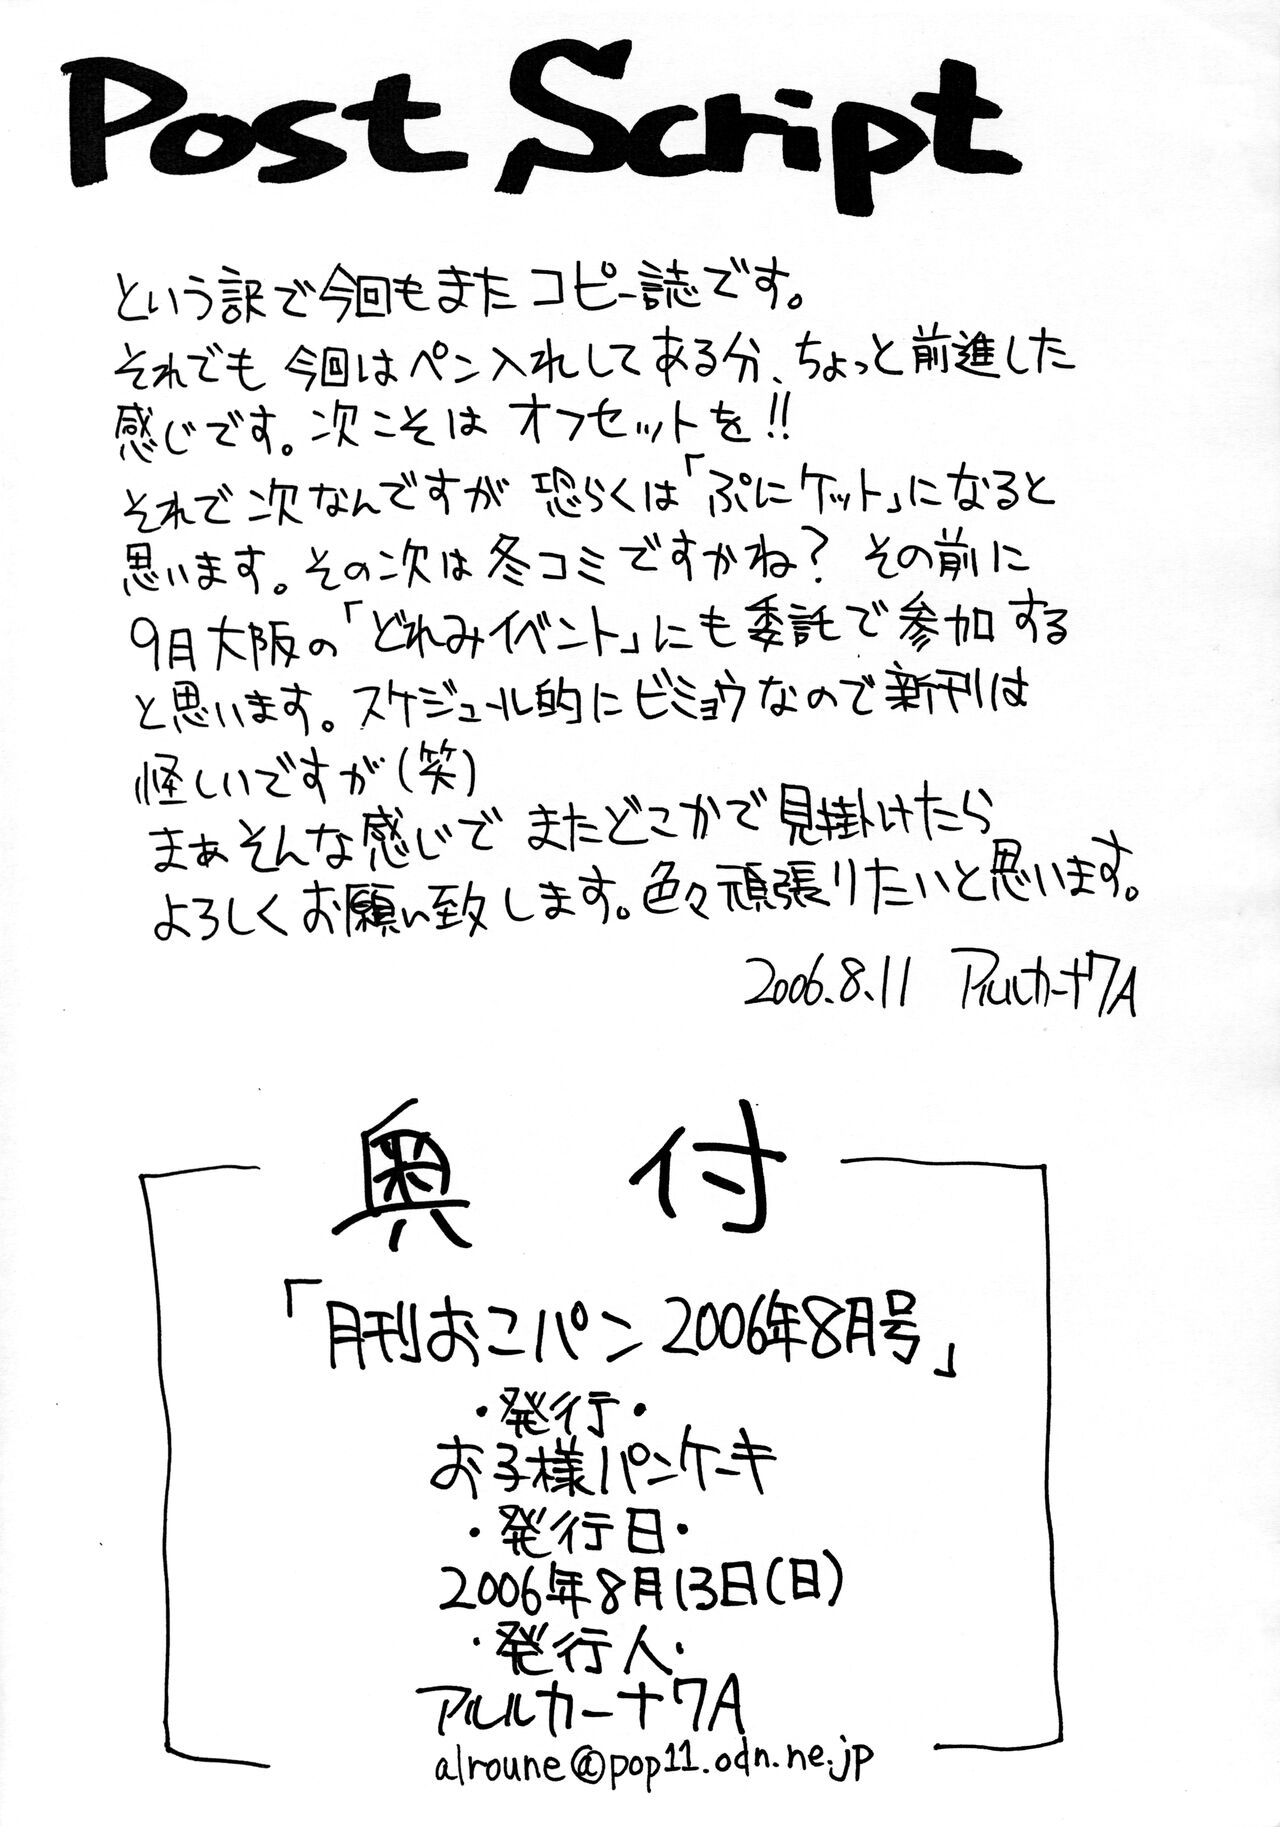 Post Script
という訳で今回もまたコピー誌です。
それでも今回はペン入れしてある分、ちょっと前進した
感じです。次こそはオフセットを!!
それで次なんですが恐らくは「ぷにケット」になると
思います。その次は冬コミですかね？その前に
9月大阪の「どれみイベント」にも委託で参加する
と思います。スケジュール的にビミョウなので新刊は
怪しいですが(笑)
まぁそんな感じでまたどこかで見掛けたら
よろしくお願い致します。色々頑張りたいと思います。
2006.8.11 アルルカーナ7A
奥付
「月刊おこパン2006年8月号」
・発行・
お子様パンケーキ
・発行日・
2006年8月13日(日)
・発行人・
アルルカーナ7A
alroune@pop11.odn.ne.jp